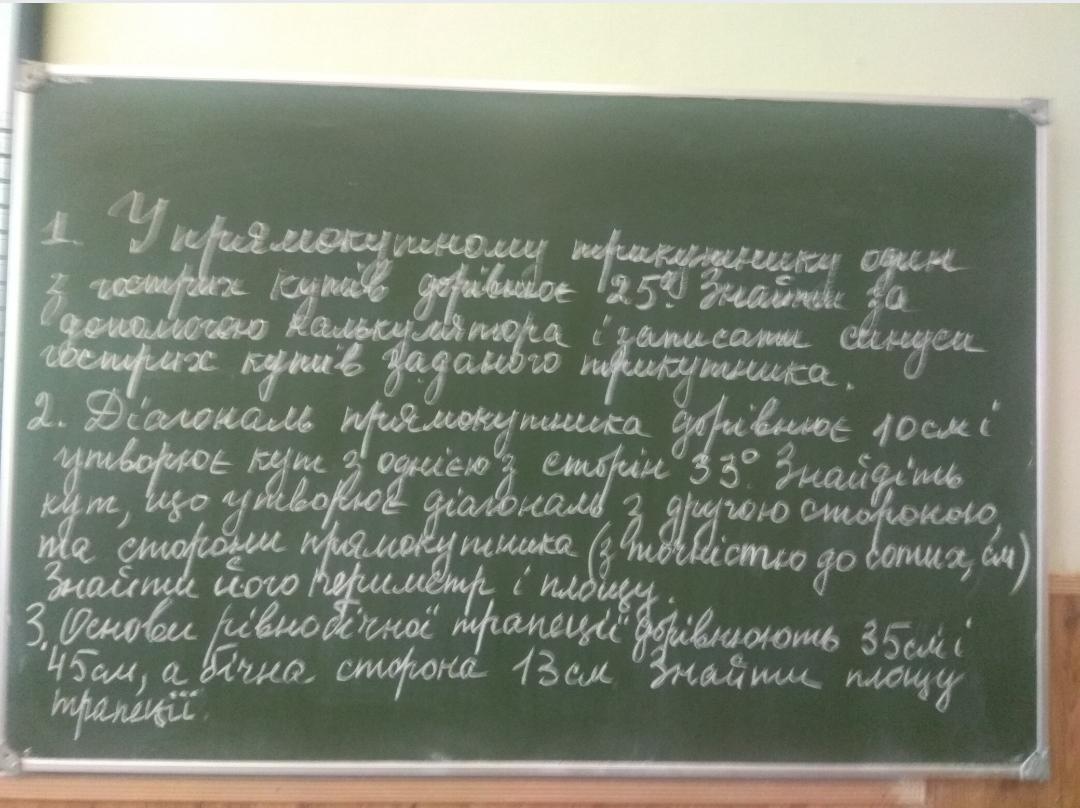 1. У прямокутному трикутнику один
з гострих кутів дорівнює 25°. Знайти за
допомогою калькулятора і записати синуси
гострих кутів заданого трикутника.
2. Діагональ прямокутника дорівнює 10см і
утворює кут з однією з сторін 33°. Знайдіть
кут, що утворює діагональ з другою стороною,
та сторони прямокутника (з точністю до сотих, см)
Знайти його периметр і площу.
3. Основи рівнобічної трапеції дорівнюють 35см і
45см, а бічна сторона 13см Знайти площу
трапеції.